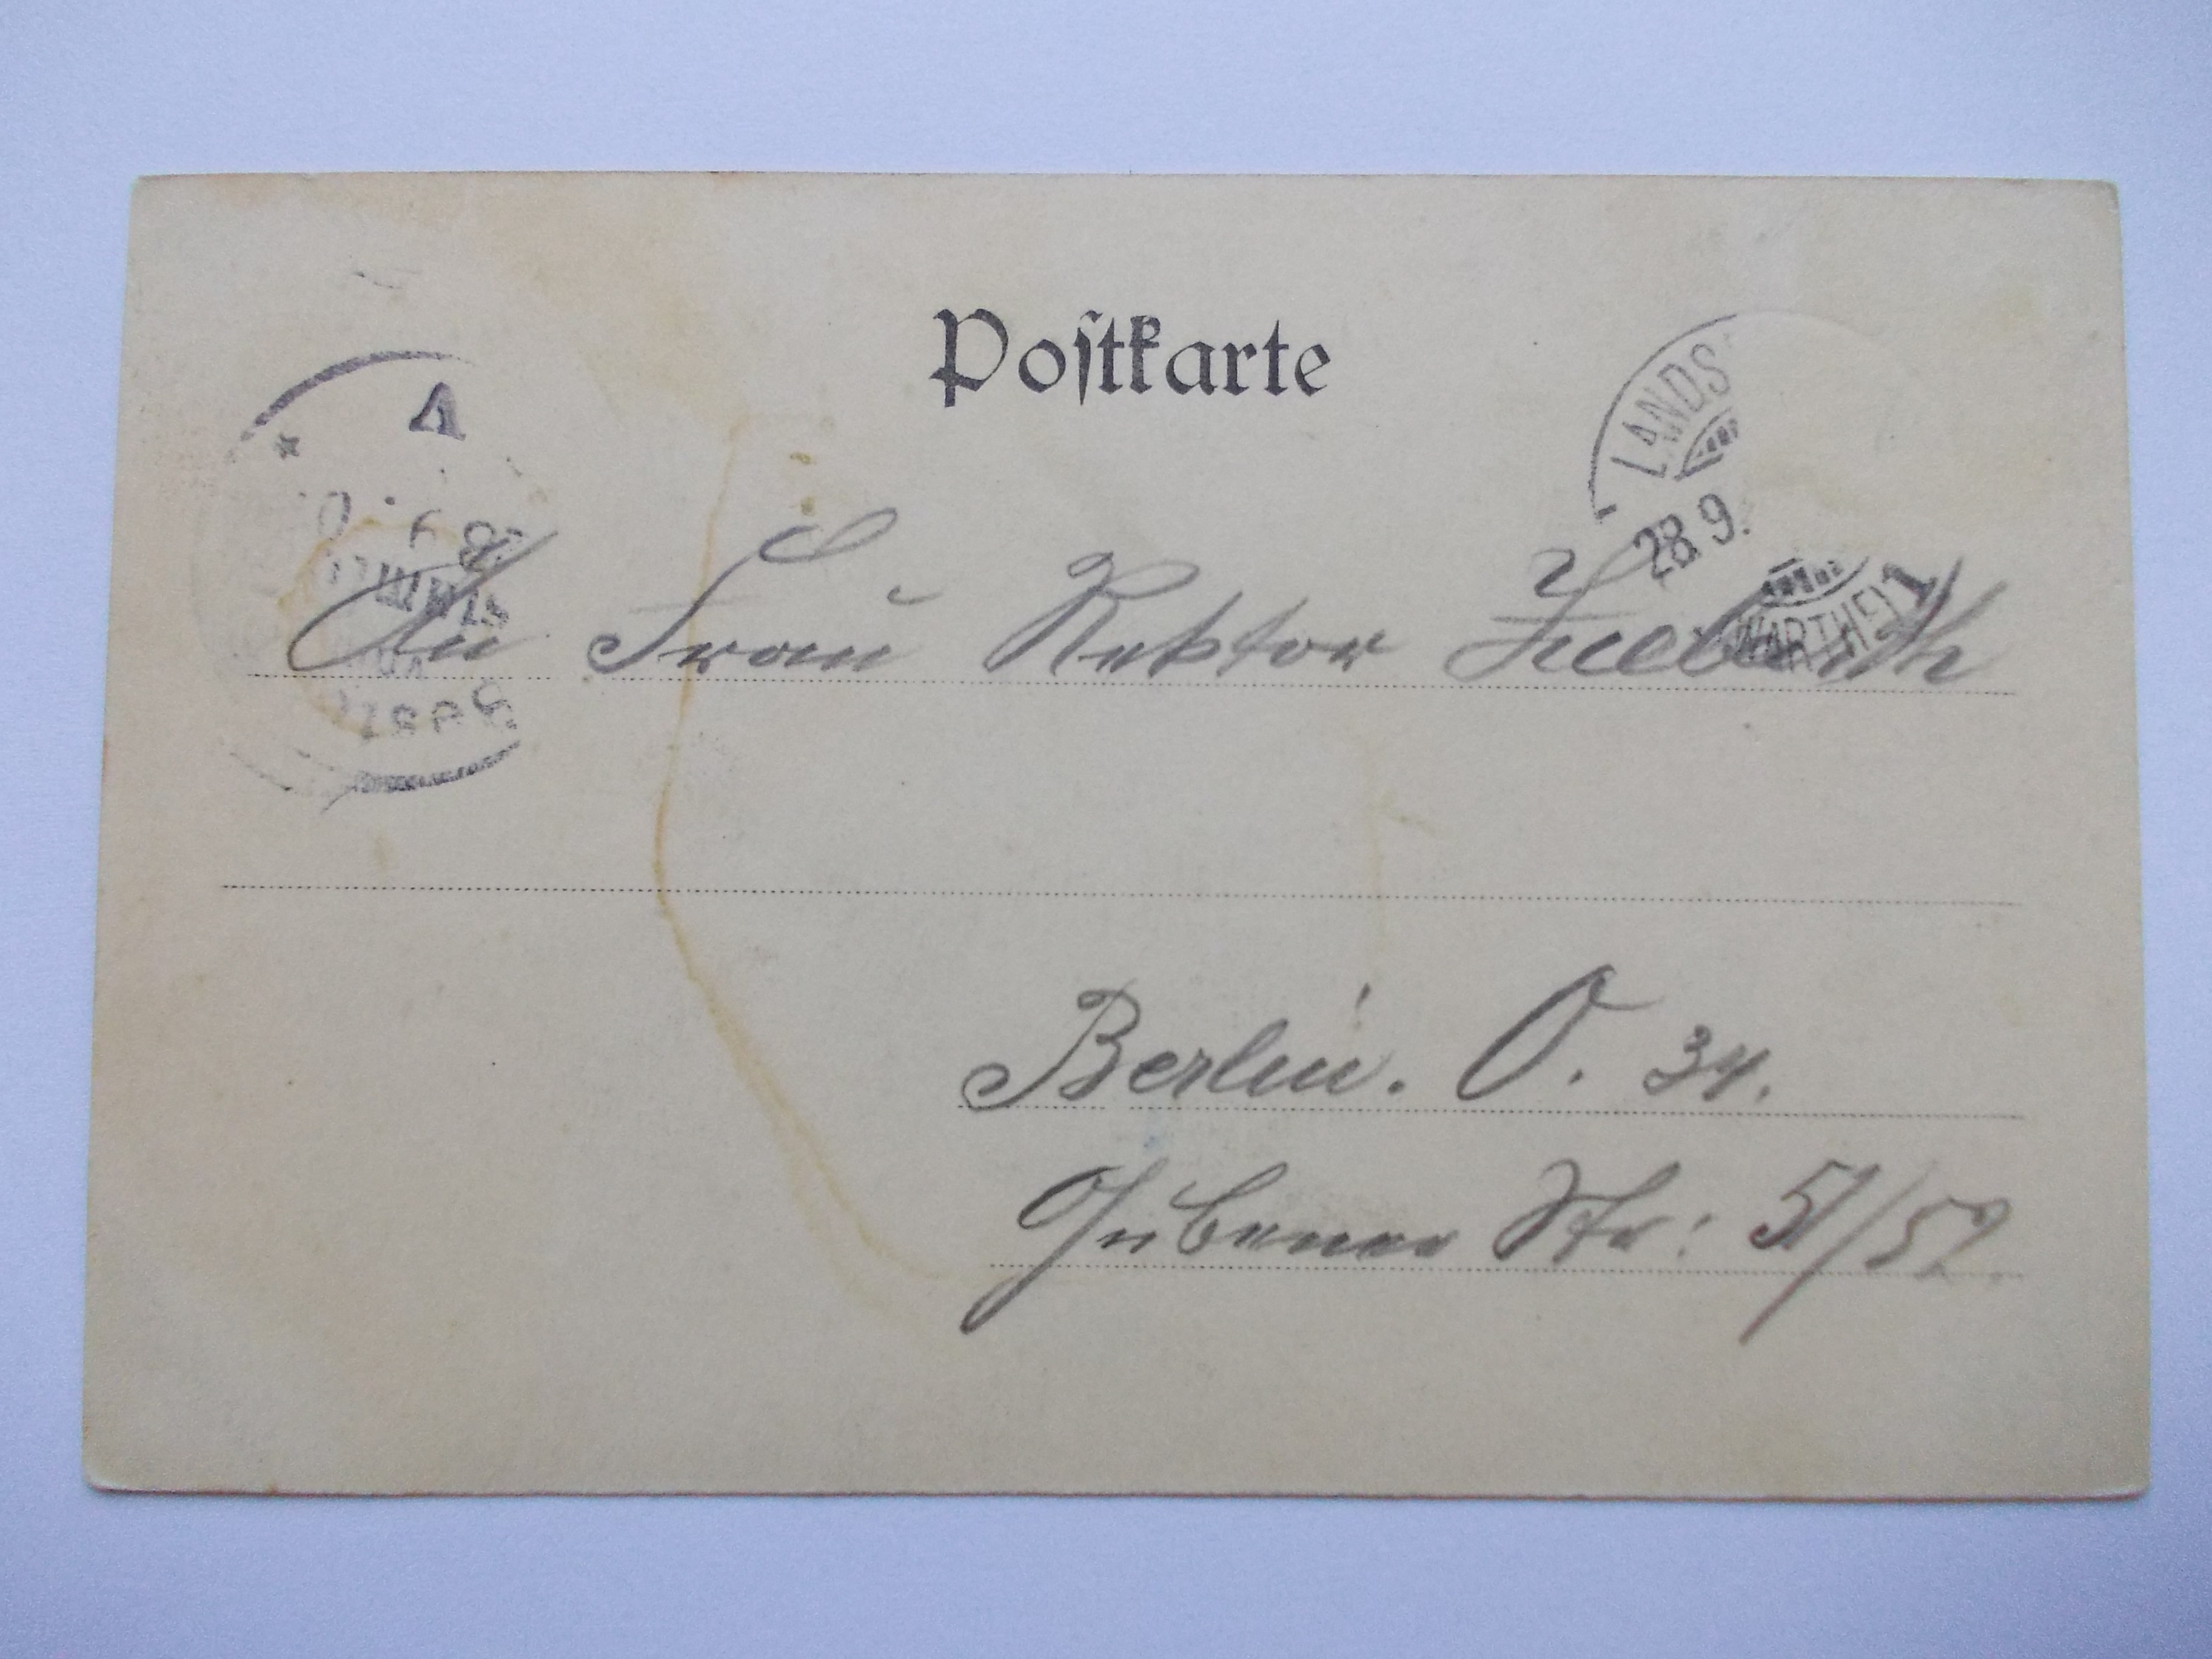 Postkarte
LANDS
28.9.
WARTHE 1
An Frau Rektor
Berlin. O. 34.
Gubener Str: 51/52